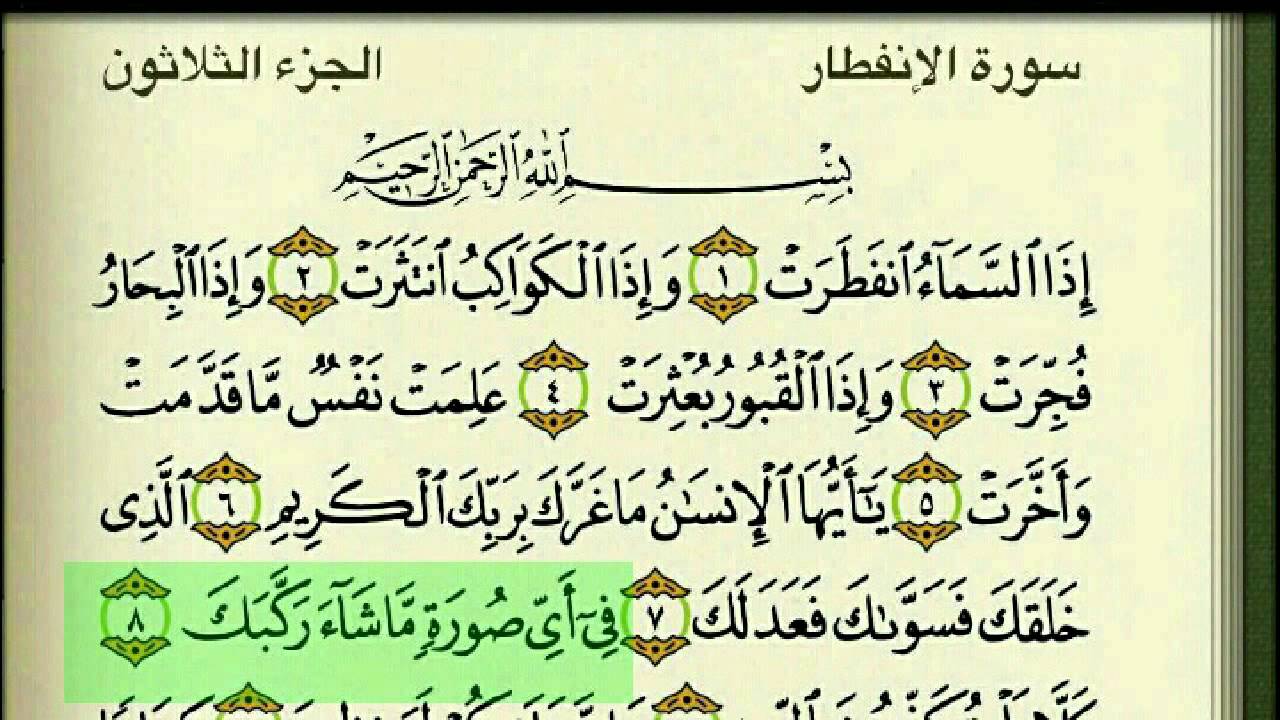 سورة الإنفطار الجزء الثلاثون
بِسْمِ ٱللَّهِ ٱلرَّحْمَٰنِ ٱلرَّحِيمِ
إِذَا ٱلسَّمَآءُ ٱنفَطَرَتْ ١ وَإِذَا ٱلْكَوَاكِبُ ٱنتَثَرَتْ ٢ وَإِذَا ٱلْبِحَارُ
فُجِّرَتْ ٣ وَإِذَا ٱلْقُبُورُ بُعْثِرَتْ ٤ عَلِمَتْ نَفْسٌ مَّا قَدَّمَتْ
وَأَخَّرَتْ ٥ يَٰٓأَيُّهَا ٱلْإِنسَٰنُ مَا غَرَّكَ بِرَبِّكَ ٱلْكَرِيمِ ٦ ٱلَّذِى
خَلَقَكَ فَسَوَّىٰكَ فَعَدَلَكَ ٧ فِىٓ أَىِّ صُورَةٍ مَّا شَآءَ رَكَّبَكَ ٨